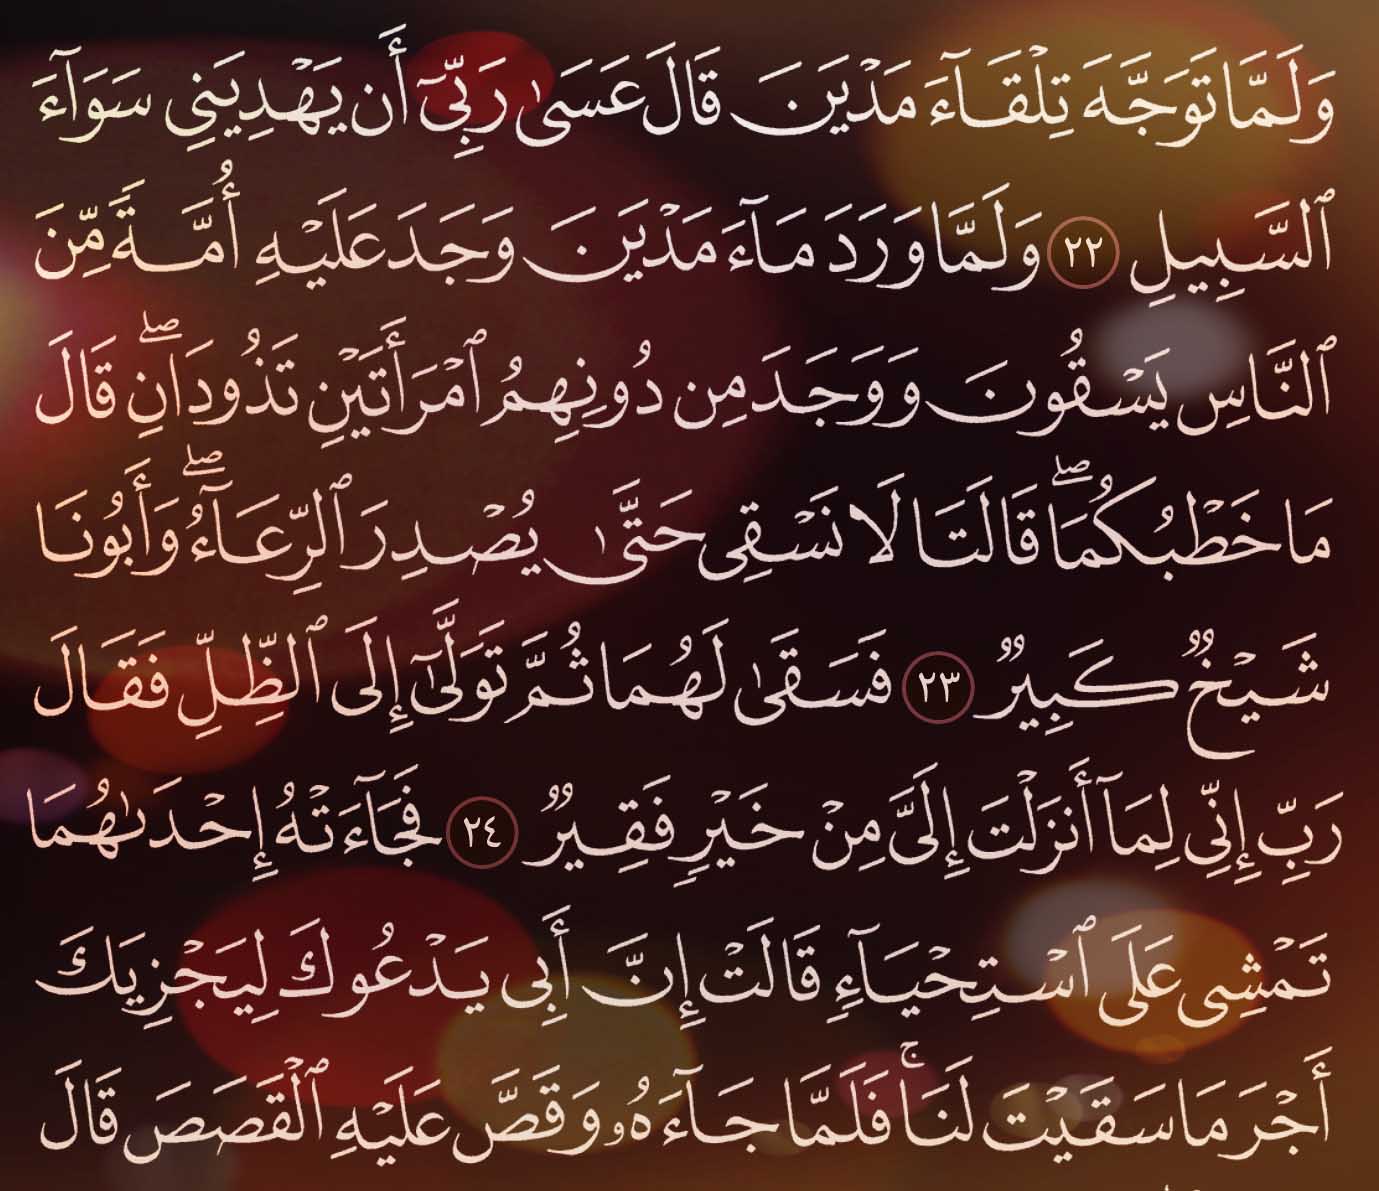 وَلَمَّا تَوَجَّهَ تِلْقَآءَ مَدْيَنَ قَالَ عَسَىٰ رَبِّىٓ أَن يَهْدِيَنِى سَوَآءَ
ٱلسَّبِيلِ ٢٢ وَلَمَّا وَرَدَ مَآءَ مَدْيَنَ وَجَدَ عَلَيْهِ أُمَّةً مِّنَ
ٱلنَّاسِ يَسْقُونَ وَوَجَدَ مِن دُونِهِمُ ٱمْرَأَتَيْنِ تَذُودَانِ ۖ قَالَ
مَا خَطْبُكُمَا ۖ قَالَتَا لَا نَسْقِى حَتَّىٰ يُصْدِرَ ٱلرِّعَآءُ ۖ وَأَبُونَا
شَيْخٌ كَبِيرٌ ٢٣ فَسَقَىٰ لَهُمَا ثُمَّ تَوَلَّىٰٓ إِلَى ٱلظِّلِّ فَقَالَ
رَبِّ إِنِّى لِمَآ أَنزَلْتَ إِلَىَّ مِنْ خَيْرٍ فَقِيرٌ ٢٤ فَجَآءَتْهُ إِحْدَىٰهُمَا
تَمْشِى عَلَى ٱسْتِحْيَآءٍ قَالَتْ إِنَّ أَبِى يَدْعُوكَ لِيَجْزِيَكَ
أَجْرَ مَا سَقَيْتَ لَنَا ۚ فَلَمَّا جَآءَهُۥ وَقَصَّ عَلَيْهِ ٱلْقَصَصَ قَالَ